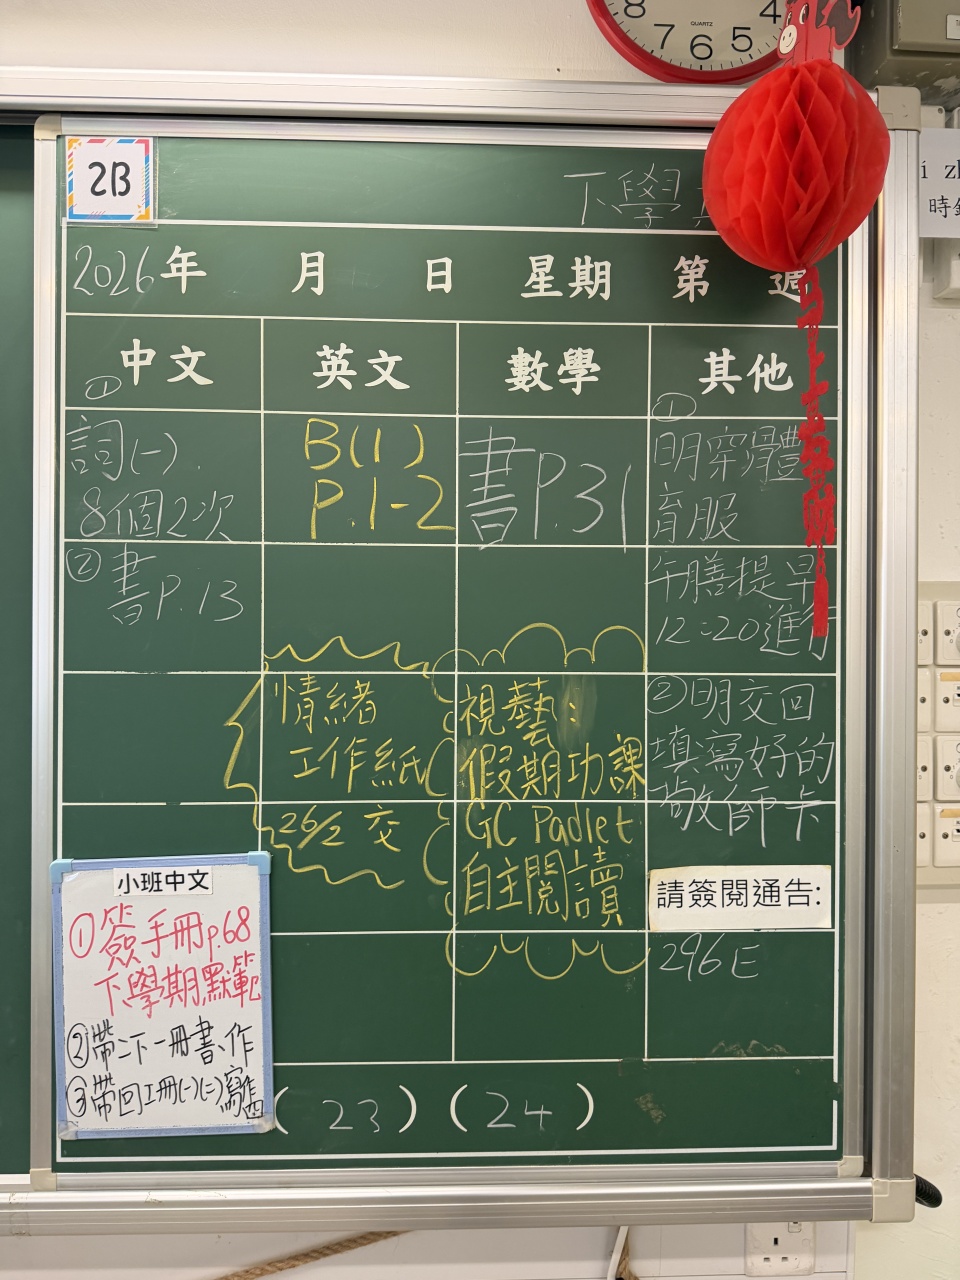 8 7 6 5 4
QUARTZ
2B
下學
2026年 月 日 星期 第 週
時
中文 英文 數學 其他
①
詞(一).
8個2次
②書P.13
B(1)
P.1-2
書P.31
①
明穿體
育服
午膳提早
12:20進行
②明交回
填寫好的
敬師卡
情緒
工作紙
26/2 交
視藝:
假期功課
GC Padlet
自主閱讀
請簽閱通告:
296E
小班中文
①簽手冊p.68
下學期默範
②帶二下一冊書、作
③帶回工冊(一)(二)寫
( 23 ) ( 24 )